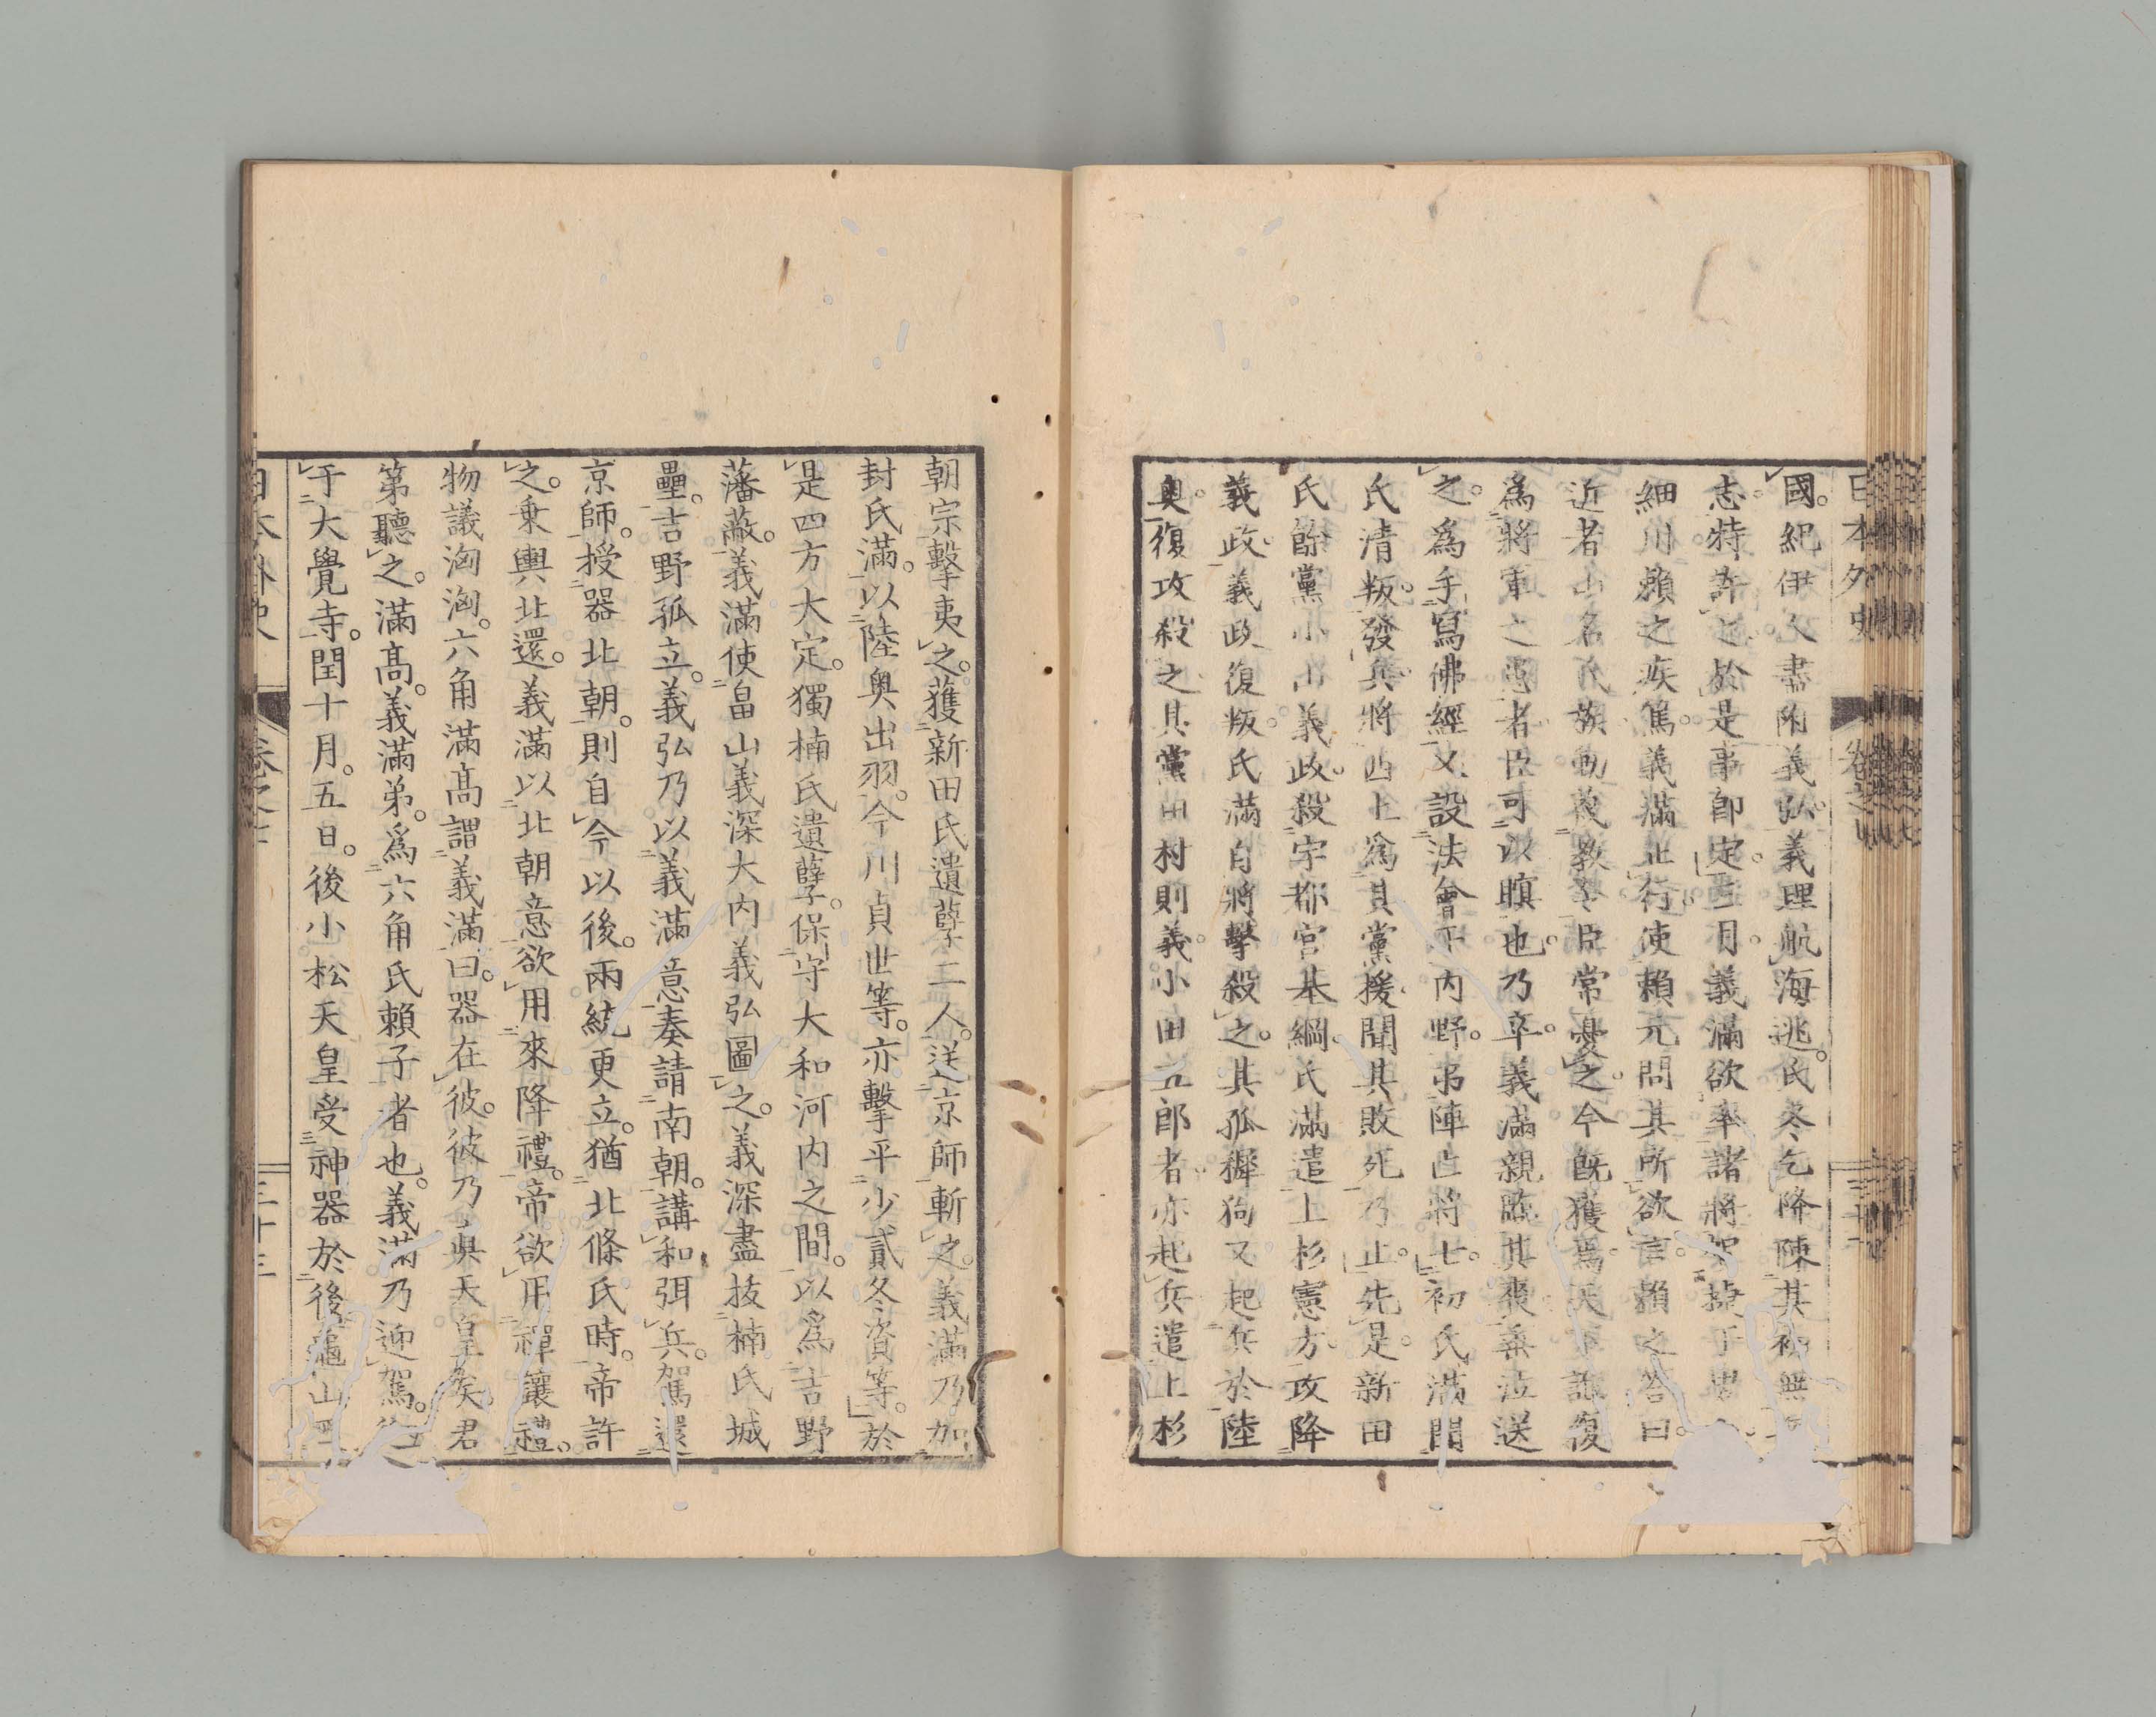 日本外史
國。紀伊人盡附義弘。義理航海逃。氏冬乞降。陳其初無
志。特許之。於是事即定。三月。義滿欲率諸將
細川賴之疾篤。義滿止行。使賴元問其所欲言。賴之答曰。
近者山名氏族動梗教令。臣常憂之。今既獲焉。天下誰復
為將軍之患者。臣可以瞑也。乃卒。義滿親臨其喪。垂泣送
之。為手寫佛經。又設法會于內野。弔陣亡將士。初氏滿聞
氏清叛。發兵將西上為其黨援。聞其敗死。乃止。先是。新田
氏餘黨小山義政。殺宇都宮基綱。氏滿遣上杉憲方。攻降
義政。義政復叛。氏滿自將擊殺之。其孤穉狗又起兵於陸
奧。復攻殺之。其黨田村則義。小田五郎者。亦起兵。遣上杉
朝宗擊夷之。獲新田氏遺孽二人。送京師斬之。義滿乃加
封氏滿。以陸奧出羽。今川貞世等。亦擊平少貳冬資等。於
是四方大定。獨楠氏遺孽。保守大和河內之間。以為吉野
藩蔽。義滿使畠山義深大內義弘圖之。義深盡拔楠氏城
壘。吉野孤立。義弘乃以義滿意奏請南朝。講和弭兵。駕還
京師。授器北朝。則自今以後。兩統更立。猶北條氏時。帝許
之。乘輿北還。義滿以北朝意欲用來降禮。帝欲用禪讓禮。
物議洶洶。六角滿高謂義滿曰。器在彼。彼乃眞天皇矣。君
第聽之。滿高。義滿弟。為六角氏賴子者也。義滿乃迎駕。
于大覺寺。閏十月。五日。後小松天皇受神器於後龜山
日本外史
卷之七
三十三